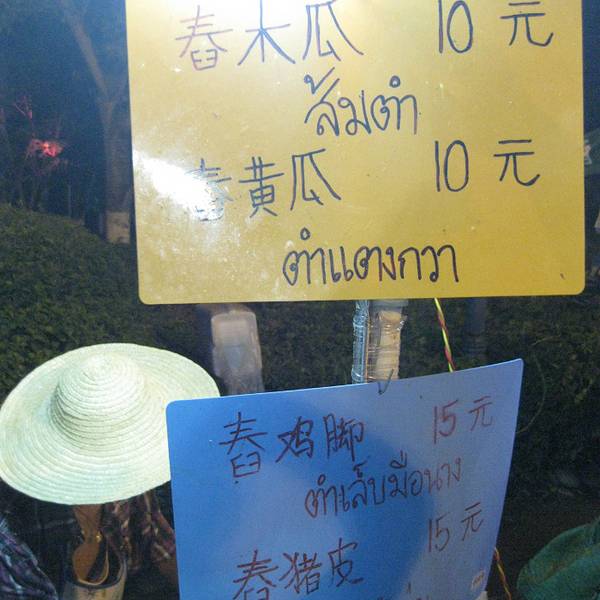 舂木瓜 10元
ส้มตำ
舂黄瓜 10元
ตำแตงกวา
舂鸡脚 15元
ตำเล็บมือนาง
舂猪皮 15元